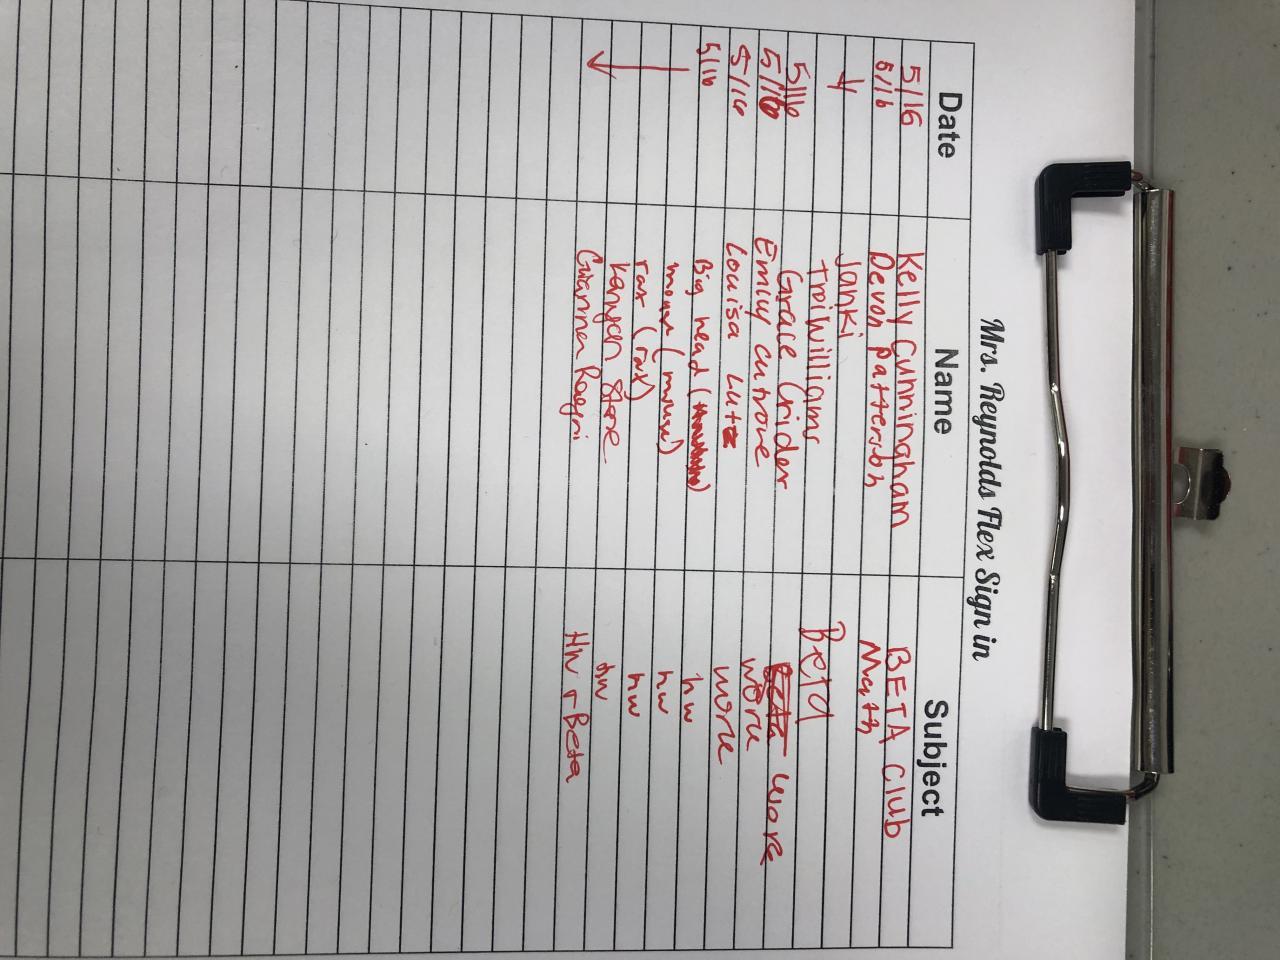 Mrs. Reynolds Flex Sign in
Date Name Subject
5/16 Kelly Cunningham BETA Club
5/16 Devon Patterson Math
↓ Janki
Trei Williams Beta
5/16 Grace Crider work
5/16 Emily Cutrone work
5/16 Louisa Lutz work
5/16 Big head hw
mouse (mouse) hw
rax (rax) hw
Stone hw
HW + Beta